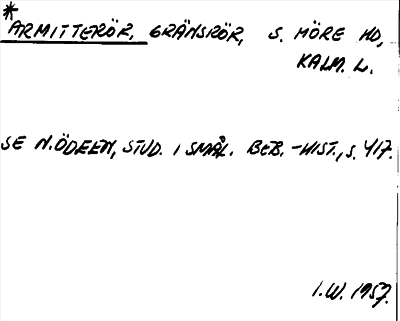 *
ARMITTERÖR, GRÄNSRÖR, S. MÖRE HD,
KALM. L.
SE N. ÖDEEN, STUD. I SMÅL. BEB.-HIST., S. 417.
I.W. 1957.